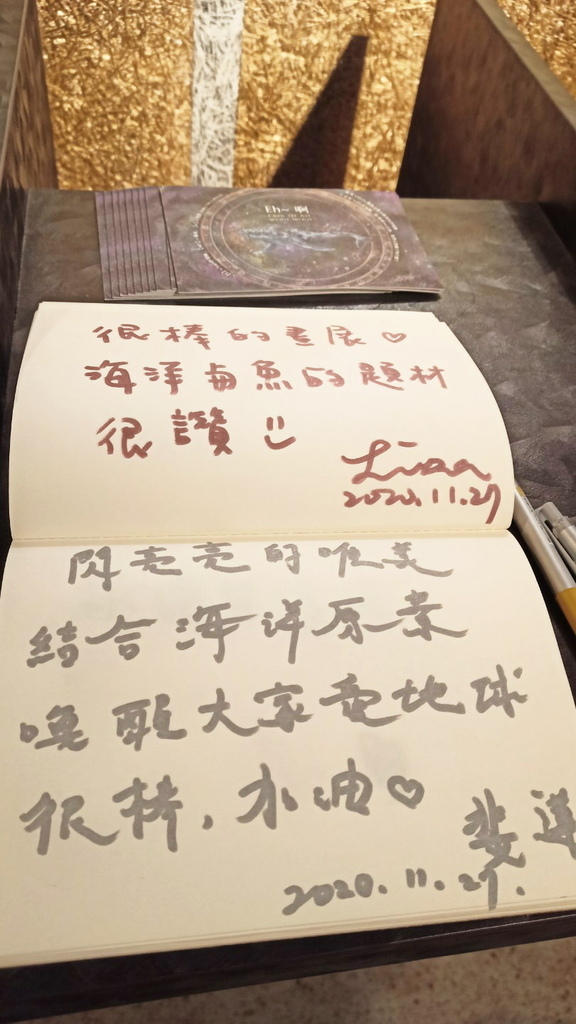 Eh~ 啊
很棒的畫展♡
海洋鯨魚的題材
很讚
Lisa
2020.11.27
閃亮亮的唯美
結合海洋原素
喚醒大家愛地球
很棒,加油♡
2020.11.27.